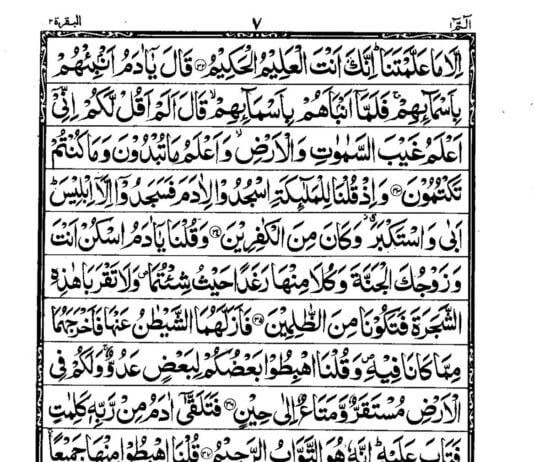 الٓمّٓ ١ ٧ البقرة ٢
اِلَّا مَا عَلَّمْتَنَا ؕ اِنَّكَ اَنْتَ الْعَلِیْمُ الْحَكِیْمُ ﴿۳۲﴾ قَالَ یٰۤاٰدَمُ اَنْۢبِئْهُمْ
بِاَسْمَآىِٕهِمْ ۚ فَلَمَّاۤ اَنْۢبَاَهُمْ بِاَسْمَآىِٕهِمْ ۙ قَالَ اَلَمْ اَقُلْ لَّكُمْ اِنِّیْۤ
اَعْلَمُ غَیْبَ السَّمٰوٰتِ وَ الْاَرْضِ ۙ وَ اَعْلَمُ مَا تُبْدُوْنَ وَ مَا كُنْتُمْ
تَكْتُمُوْنَ ﴿۳۳﴾ وَ اِذْ قُلْنَا لِلْمَلٰٓىِٕكَةِ اسْجُدُوْا لِاٰدَمَ فَسَجَدُوْۤا اِلَّاۤ اِبْلِیْسَ ؕ
اَبٰی وَ اسْتَكْبَرَ ٭ۗ وَ كَانَ مِنَ الْكٰفِرِیْنَ ﴿۳۴﴾ وَ قُلْنَا یٰۤاٰدَمُ اسْكُنْ اَنْتَ
وَ زَوْجُكَ الْجَنَّةَ وَ كُلَا مِنْهَا رَغَدًا حَیْثُ شِئْتُمَا ۪ وَ لَا تَقْرَبَا هٰذِهِ
الشَّجَرَةَ فَتَكُوْنَا مِنَ الظّٰلِمِیْنَ ﴿۳۵﴾ فَاَزَلَّهُمَا الشَّیْطٰنُ عَنْهَا فَاَخْرَجَهُمَا
مِمَّا كَانَا فِیْهِ ۪ وَ قُلْنَا اهْبِطُوْا بَعْضُكُمْ لِبَعْضٍ عَدُوٌّ ۚ وَ لَكُمْ فِی
الْاَرْضِ مُسْتَقَرٌّ وَّ مَتَاعٌ اِلٰی حِیْنٍ ﴿۳۶﴾ فَتَلَقّٰۤی اٰدَمُ مِنْ رَّبِّهٖ كَلِمٰتٍ
فَتَابَ عَلَیْهِ ؕ اِنَّهٗ هُوَ التَّوَّابُ الرَّحِیْمُ ﴿۳۷﴾ قُلْنَا اهْبِطُوْا مِنْهَا جَمِیْعًا ۚ